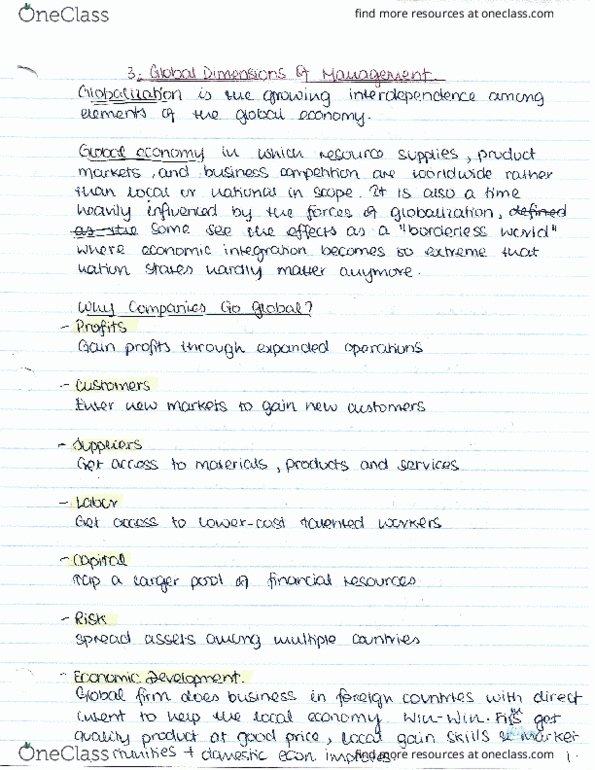 OneClass
find more resources at oneclass.com
3. Global Dimensions of Management
Globalization is the growing interdependence among
elements of the global economy.
Global economy in which resource supplies, product
markets, and business competition are worldwide rather
than local or national in scope. It is also a time
heavily influenced by the forces of globalization, defined
as the some see the effects as a "borderless world"
where economic integration becomes so extreme that
nation states hardly matter anymore.
Why Companies Go Global?
- Profits
Gain profits through expanded operations
- Customers
Enter new markets to gain new customers
- Suppliers
Get access to materials, products and services
- Labor
Get access to lower-cost talented workers
- Capital
Tap a larger pool of financial resources
- Risk
spread assets among multiple countries
- Economic Development.
Global firm does business in foreign countries with direct
intent to help the local economy. Win-Win. Firm get
quality product at good price, local gain skills & market
OneClass
+ domestic econ improves
find more resources at oneclass.com
1.